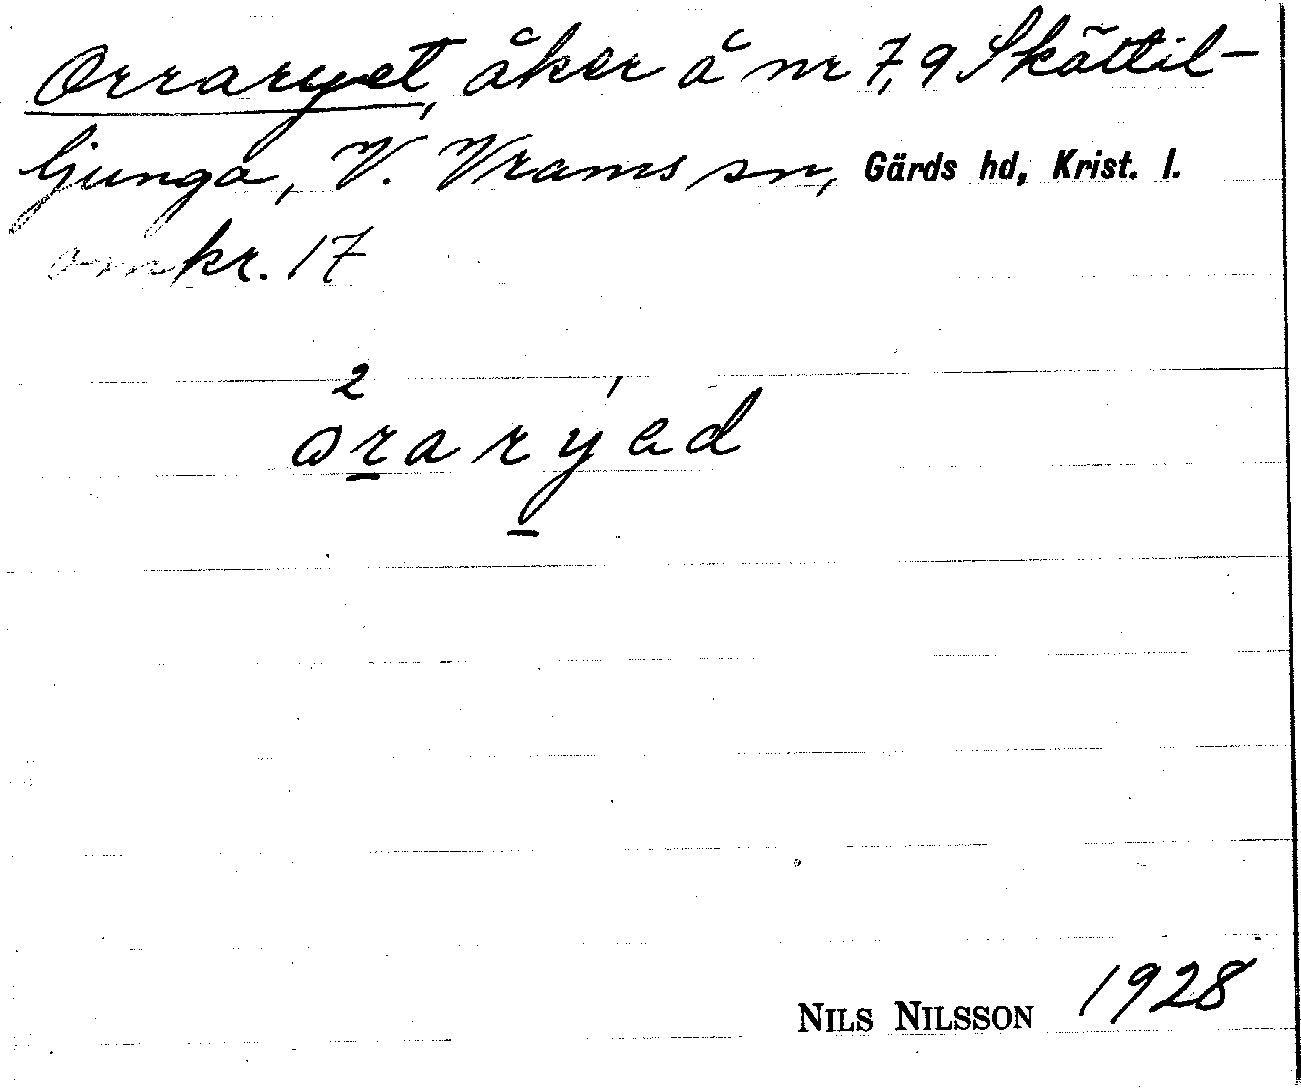 Orraryet, åker å nr 7,9 Skättil-
ljunga, V. Vrams sn, Gärds hd, Krist. l.
omkr. 17
2 ′
ɷraryed
NILS NILSSON 1928